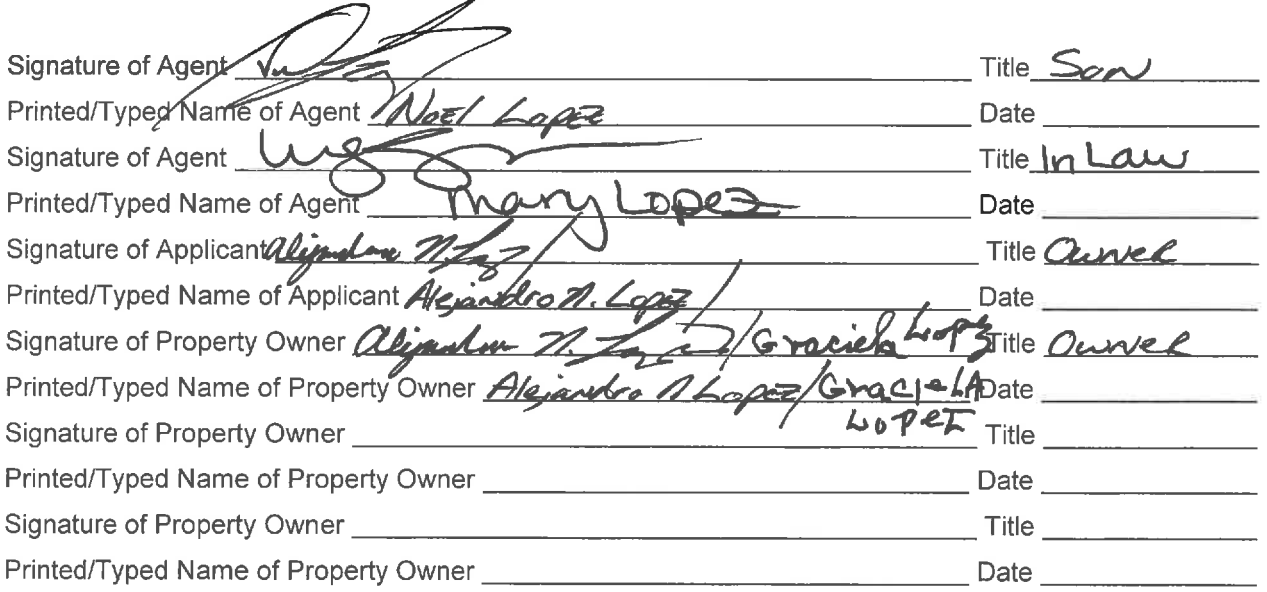 Signature of Agent Title Son
Printed/Typed Name of Agent Noel Lopez Date
Signature of Agent Title In Law
Printed/Typed Name of Agent Mary Lopez Date
Signature of Applicant Alejandro N. Lopez Title Owner
Printed/Typed Name of Applicant Alejandro N. Lopez Date
Signature of Property Owner Alejandro N. Lopez / Graciela Lopez Title Owner
Printed/Typed Name of Property Owner Alejandro N Lopez / GracieLA Lopez Date
Signature of Property Owner Title
Printed/Typed Name of Property Owner Date
Signature of Property Owner Title
Printed/Typed Name of Property Owner Date